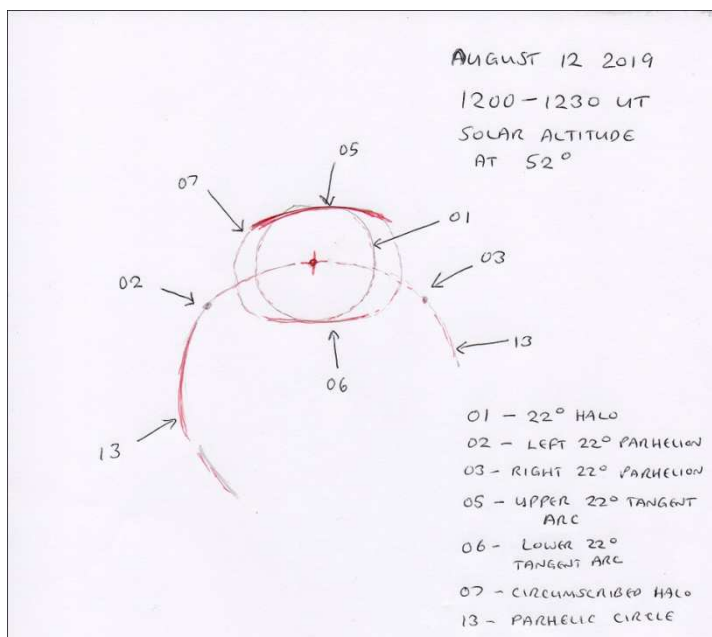 AUGUST 12 2019
1200-1230 UT
SOLAR ALTITUDE
AT 52°
05
07
01
03
02
13
06
13
01 - 22° HALO
02 - LEFT 22° PARHELION
03 - RIGHT 22° PARHELION
05 - UPPER 22° TANGENT
ARC
06 - LOWER 22°
TANGENT ARC
07 - CIRCUMSCRIBED HALO
13 - PARHELIC CIRCLE